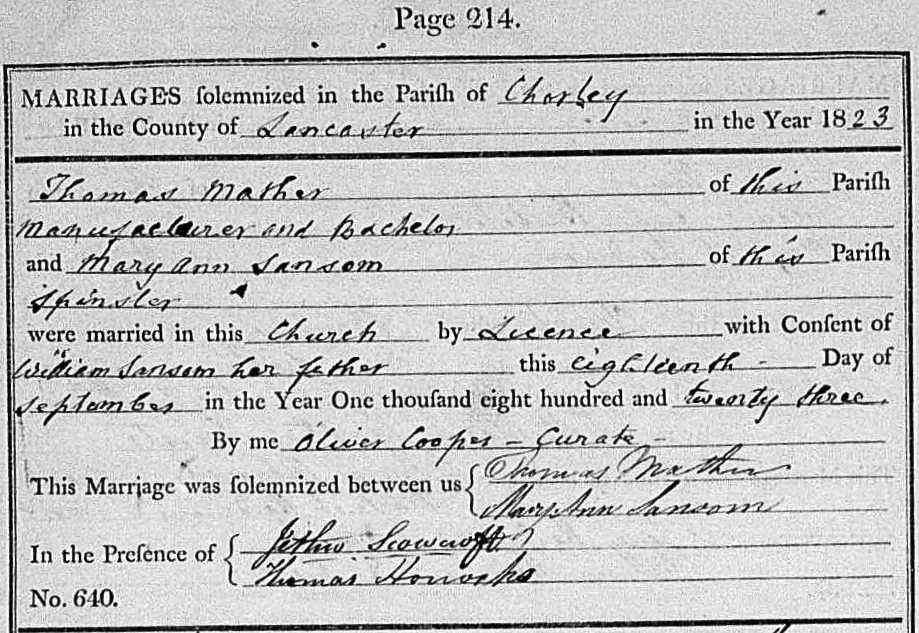 Page 214.
MARRIAGES ſolemnized in the Pariſh of Chorley
in the County of Lancaster in the Year 1823
Thomas Mather of this Pariſh
Manufacturer and Bachelor
and Mary Ann Sansom of this Pariſh
Spinster
were married in this Church by Licence with Conſent of
William Sansom her father this eighteenth Day of
September in the Year One thouſand eight hundred and twenty three.
By me Oliver Cooper - Curate -
This Marriage was ſolemnized between us { Thomas Mather
Mary Ann Sansom
In the Preſence of { Jethro Scowcroft
Thomas Horrocks
No. 640.